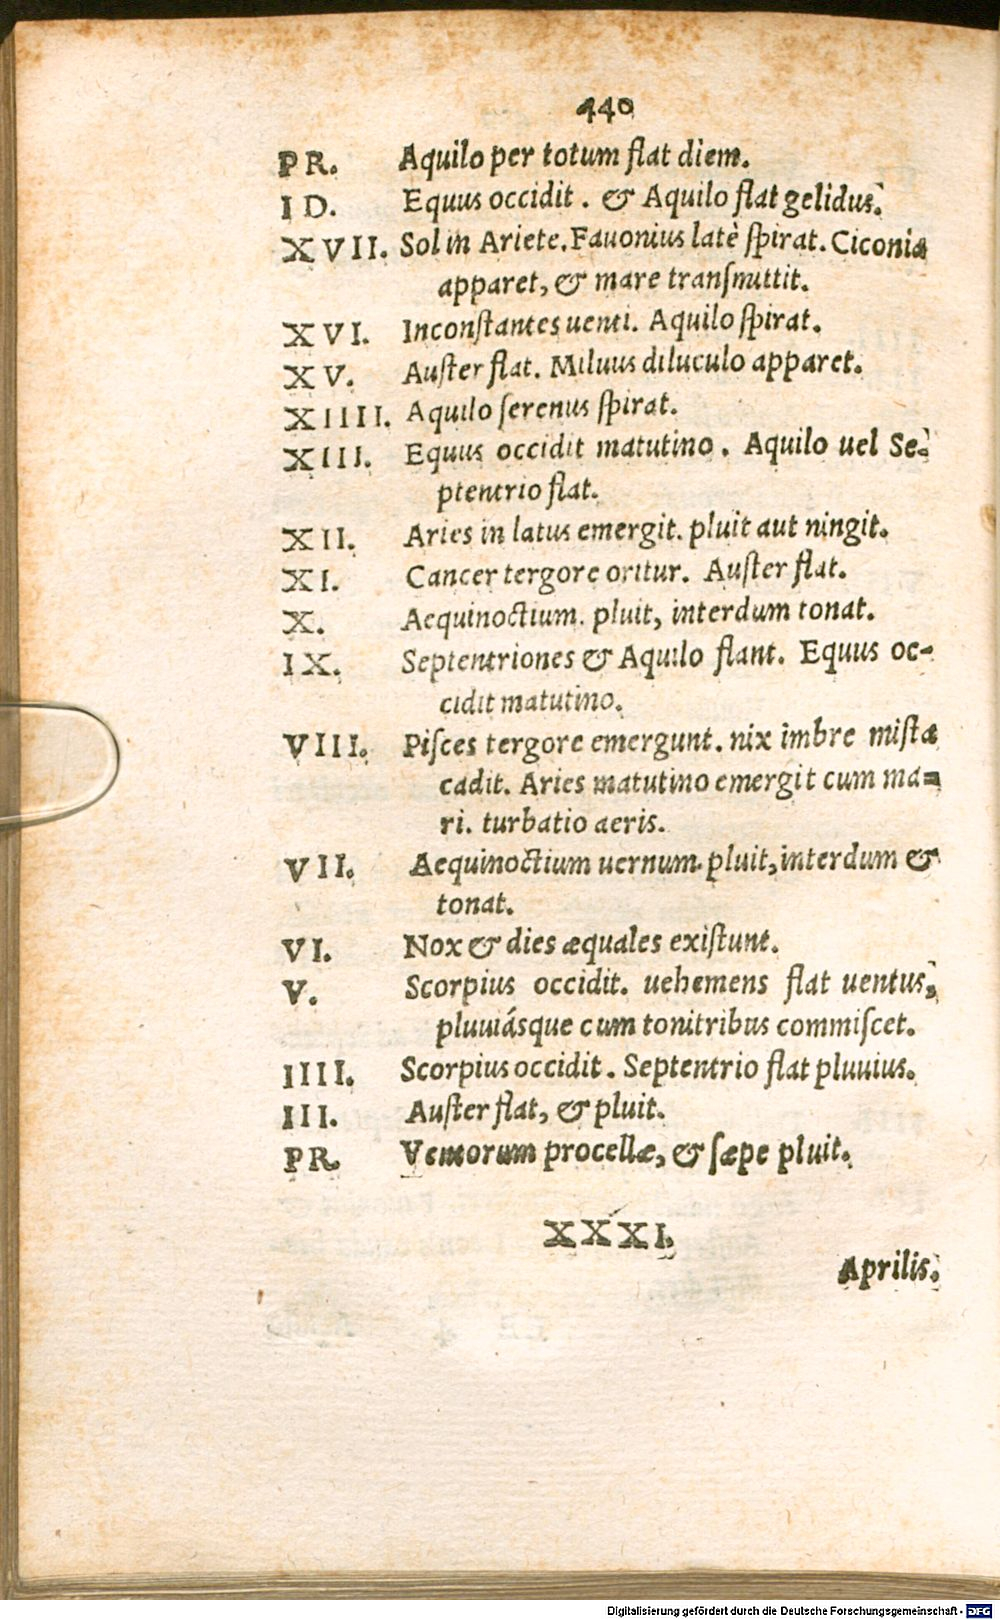 440
PR. Aquilo per totum flat diem.
ID. Equus occidit. & Aquilo flat gelidus.
XVII. Sol in Ariete. Fauonius latè ſpirat. Ciconia
apparet, & mare tranſmittit.
XVI. Inconſtantes uenti. Aquilo ſpirat.
XV. Auſter flat. Miluus diluculo apparet.
XIIII. Aquilo ſerenus ſpirat.
XIII. Equus occidit matutino. Aquilo uel Se-
ptentrio flat.
XII. Aries in latus emergit. pluit aut ningit.
XI. Cancer tergore oritur. Auſter flat.
X. Aequinoctium. pluit, interdum tonat.
IX. Septentriones & Aquilo flant. Equus oc-
cidit matutino.
VIII. Piſces tergore emergunt. nix imbre miſta
cadit. Aries matutino emergit cum ma-
ri. turbatio aeris.
VII. Aequinoctium uernum. pluit, interdum &
tonat.
VI. Nox & dies æquales exiſtunt.
V. Scorpius occidit. uehemens flat uentus,
pluuiásque cum tonitribus commiſcet.
IIII. Scorpius occidit. Septentrio flat pluuius.
III. Auſter flat, & pluit.
PR. Ventorum procellæ, & ſæpe pluit.
XXXI.
Aprilis.
Digitalisierung gefördert durch die Deutsche Forschungsgemeinschaft - DFG